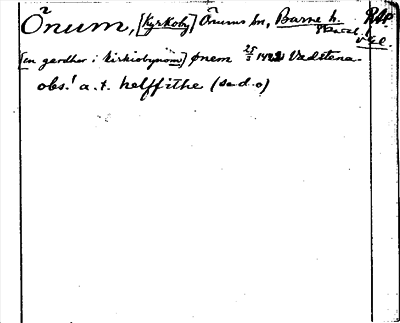 Õnum, [Kyrkoby] Õnums sn, Barne h. RAp
Skarab. l. Vgl.
[en gerdher i kirkiobynom] Ønem 25/2 1422 Vadstena.
obs.! a.t. helffithe (se d.o)